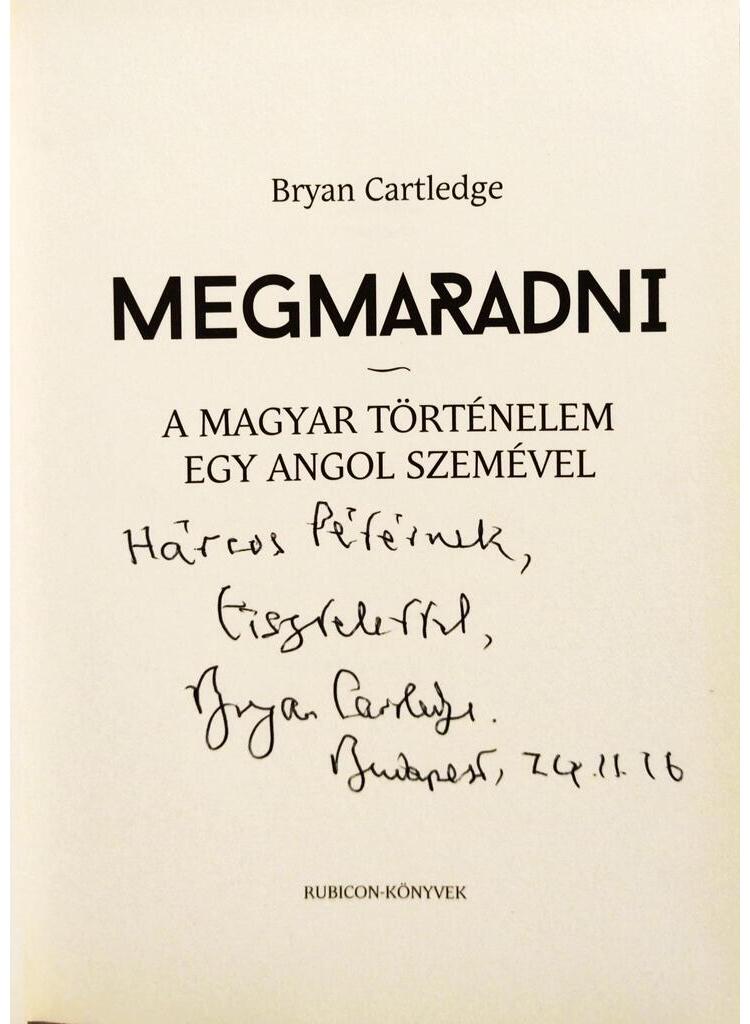 Bryan Cartledge
MEGMARADNI
A MAGYAR TÖRTÉNELEM
EGY ANGOL SZEMÉVEL
Hárcos Péternek,
tisztelettel,
Bryan Cartledge.
Budapest, 24.11.16
RUBICON-KÖNYVEK